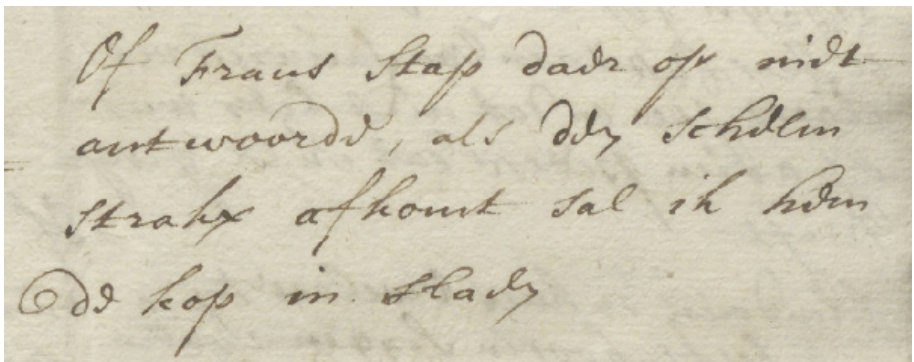 Of Frans Stap daer op niet
antwoorde, als den schelm
strakx afkomt sal ik hem
de kop in slaen